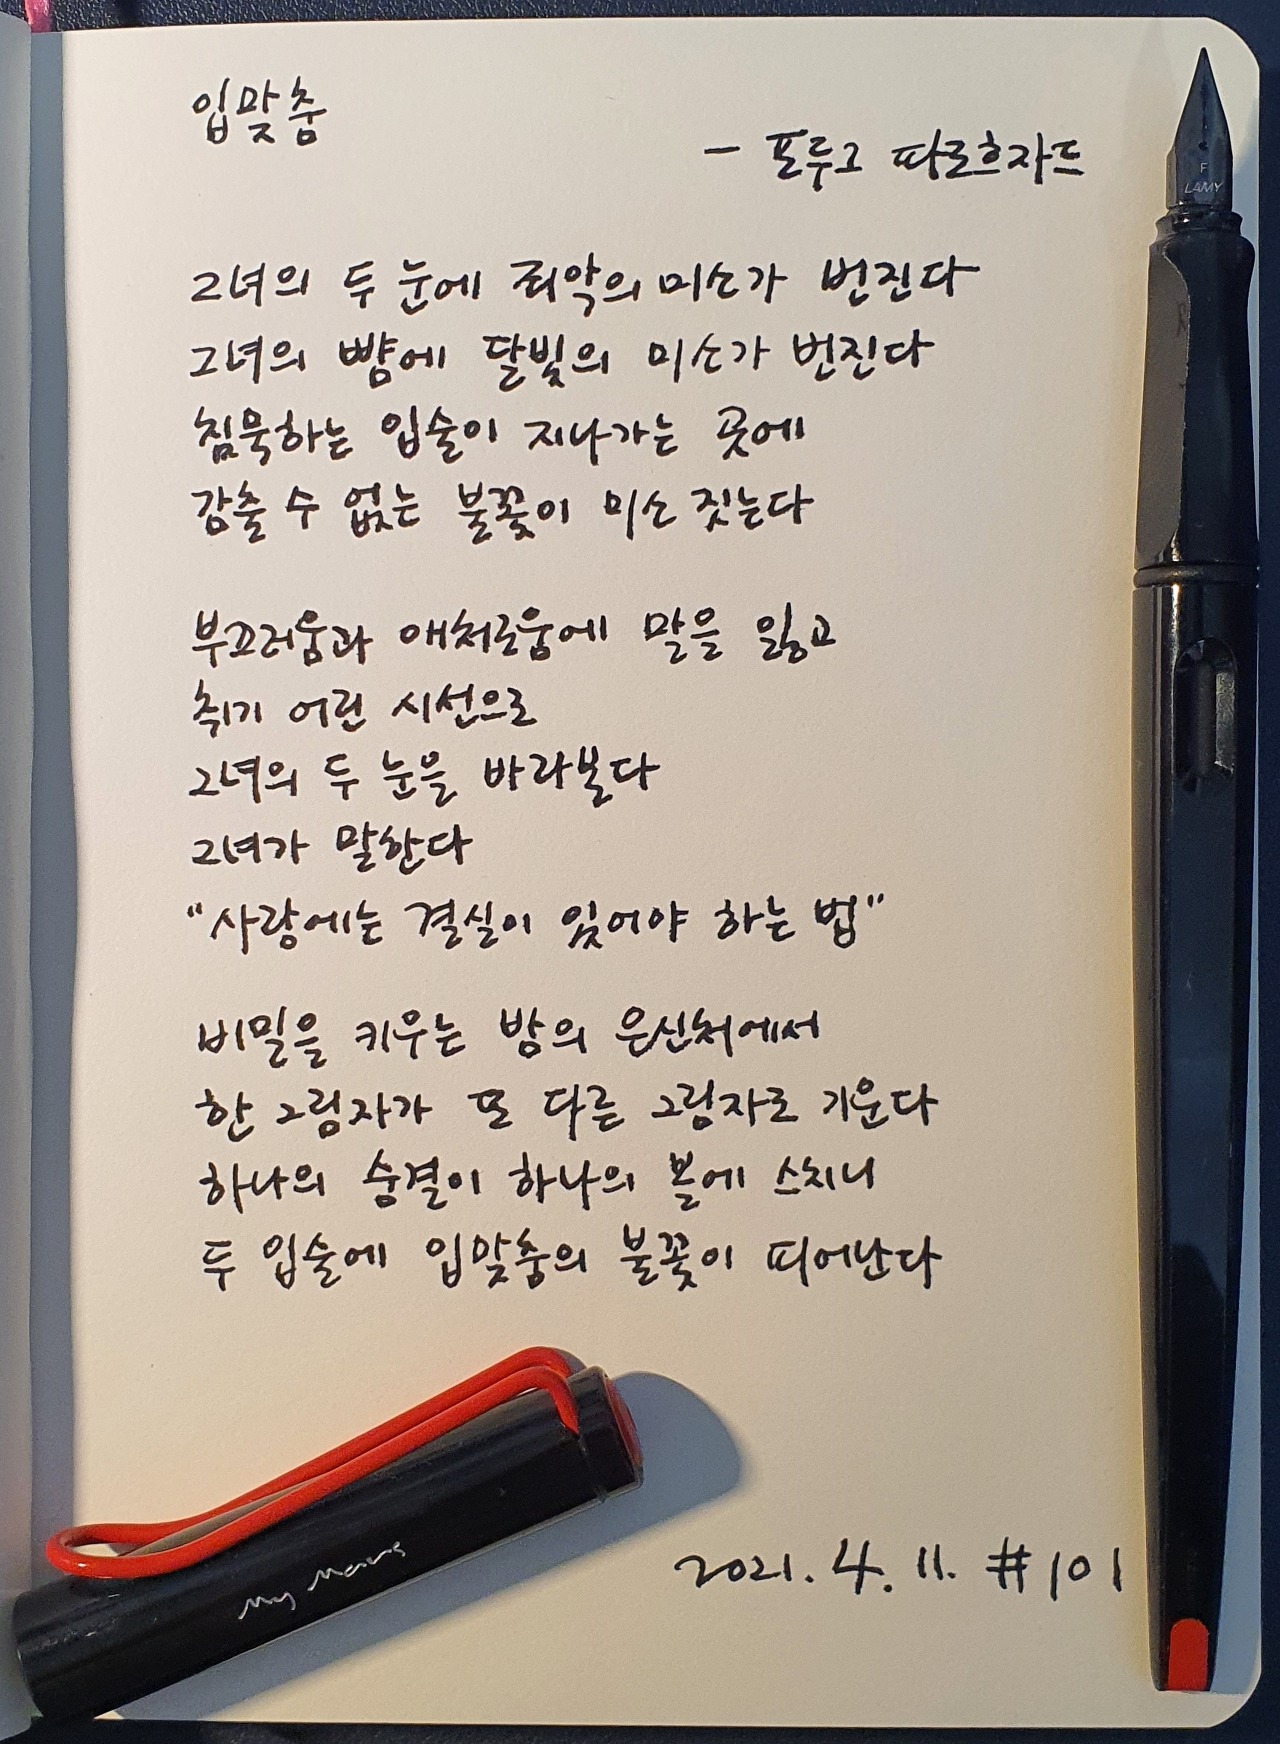 입맞춤
- 포루그 파로흐자드
그녀의 두 눈에 죄악의 미소가 번진다
그녀의 뺨에 달빛의 미소가 번진다
침묵하는 입술이 지나가는 곳에
감출 수 없는 불꽃이 미소 짓는다
부끄러움과 애처로움에 말을 잃고
취기 어린 시선으로
그녀의 두 눈을 바라본다
그녀가 말한다
"사랑에는 결실이 있어야 하는 법"
비밀을 키우는 밤의 은신처에서
한 그림자가 또 다른 그림자로 기운다
하나의 숨결이 하나의 볼에 스치니
두 입술에 입맞춤의 불꽃이 피어난다
2021. 4. 11. #101
F
LAMY